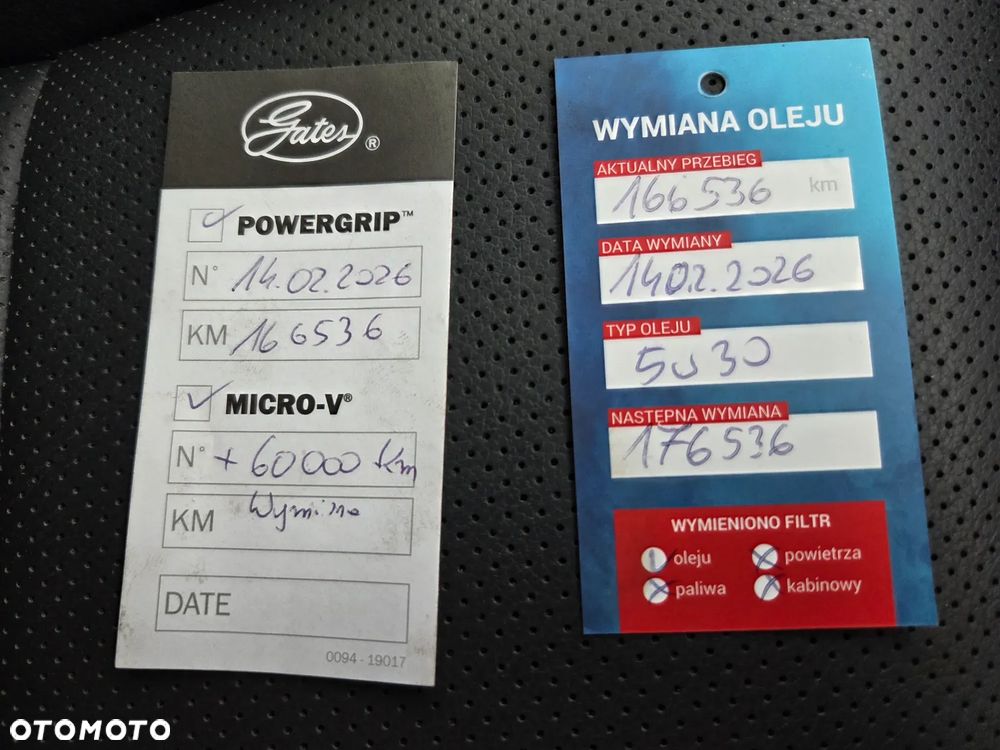 Gates ®
POWERGRIP™
N° 14.02.2026
KM 166536
MICRO-V®
N° + 60000 km
KM Wymiana
DATE
0094 - 19017
WYMIANA OLEJU
AKTUALNY PRZEBIEG
166536 km
DATA WYMIANY
14.02.2026
TYP OLEJU
5W30
NASTĘPNA WYMIANA
176536
WYMIENIONO FILTR
oleju powietrza
paliwa kabinowy
OTOMOTO